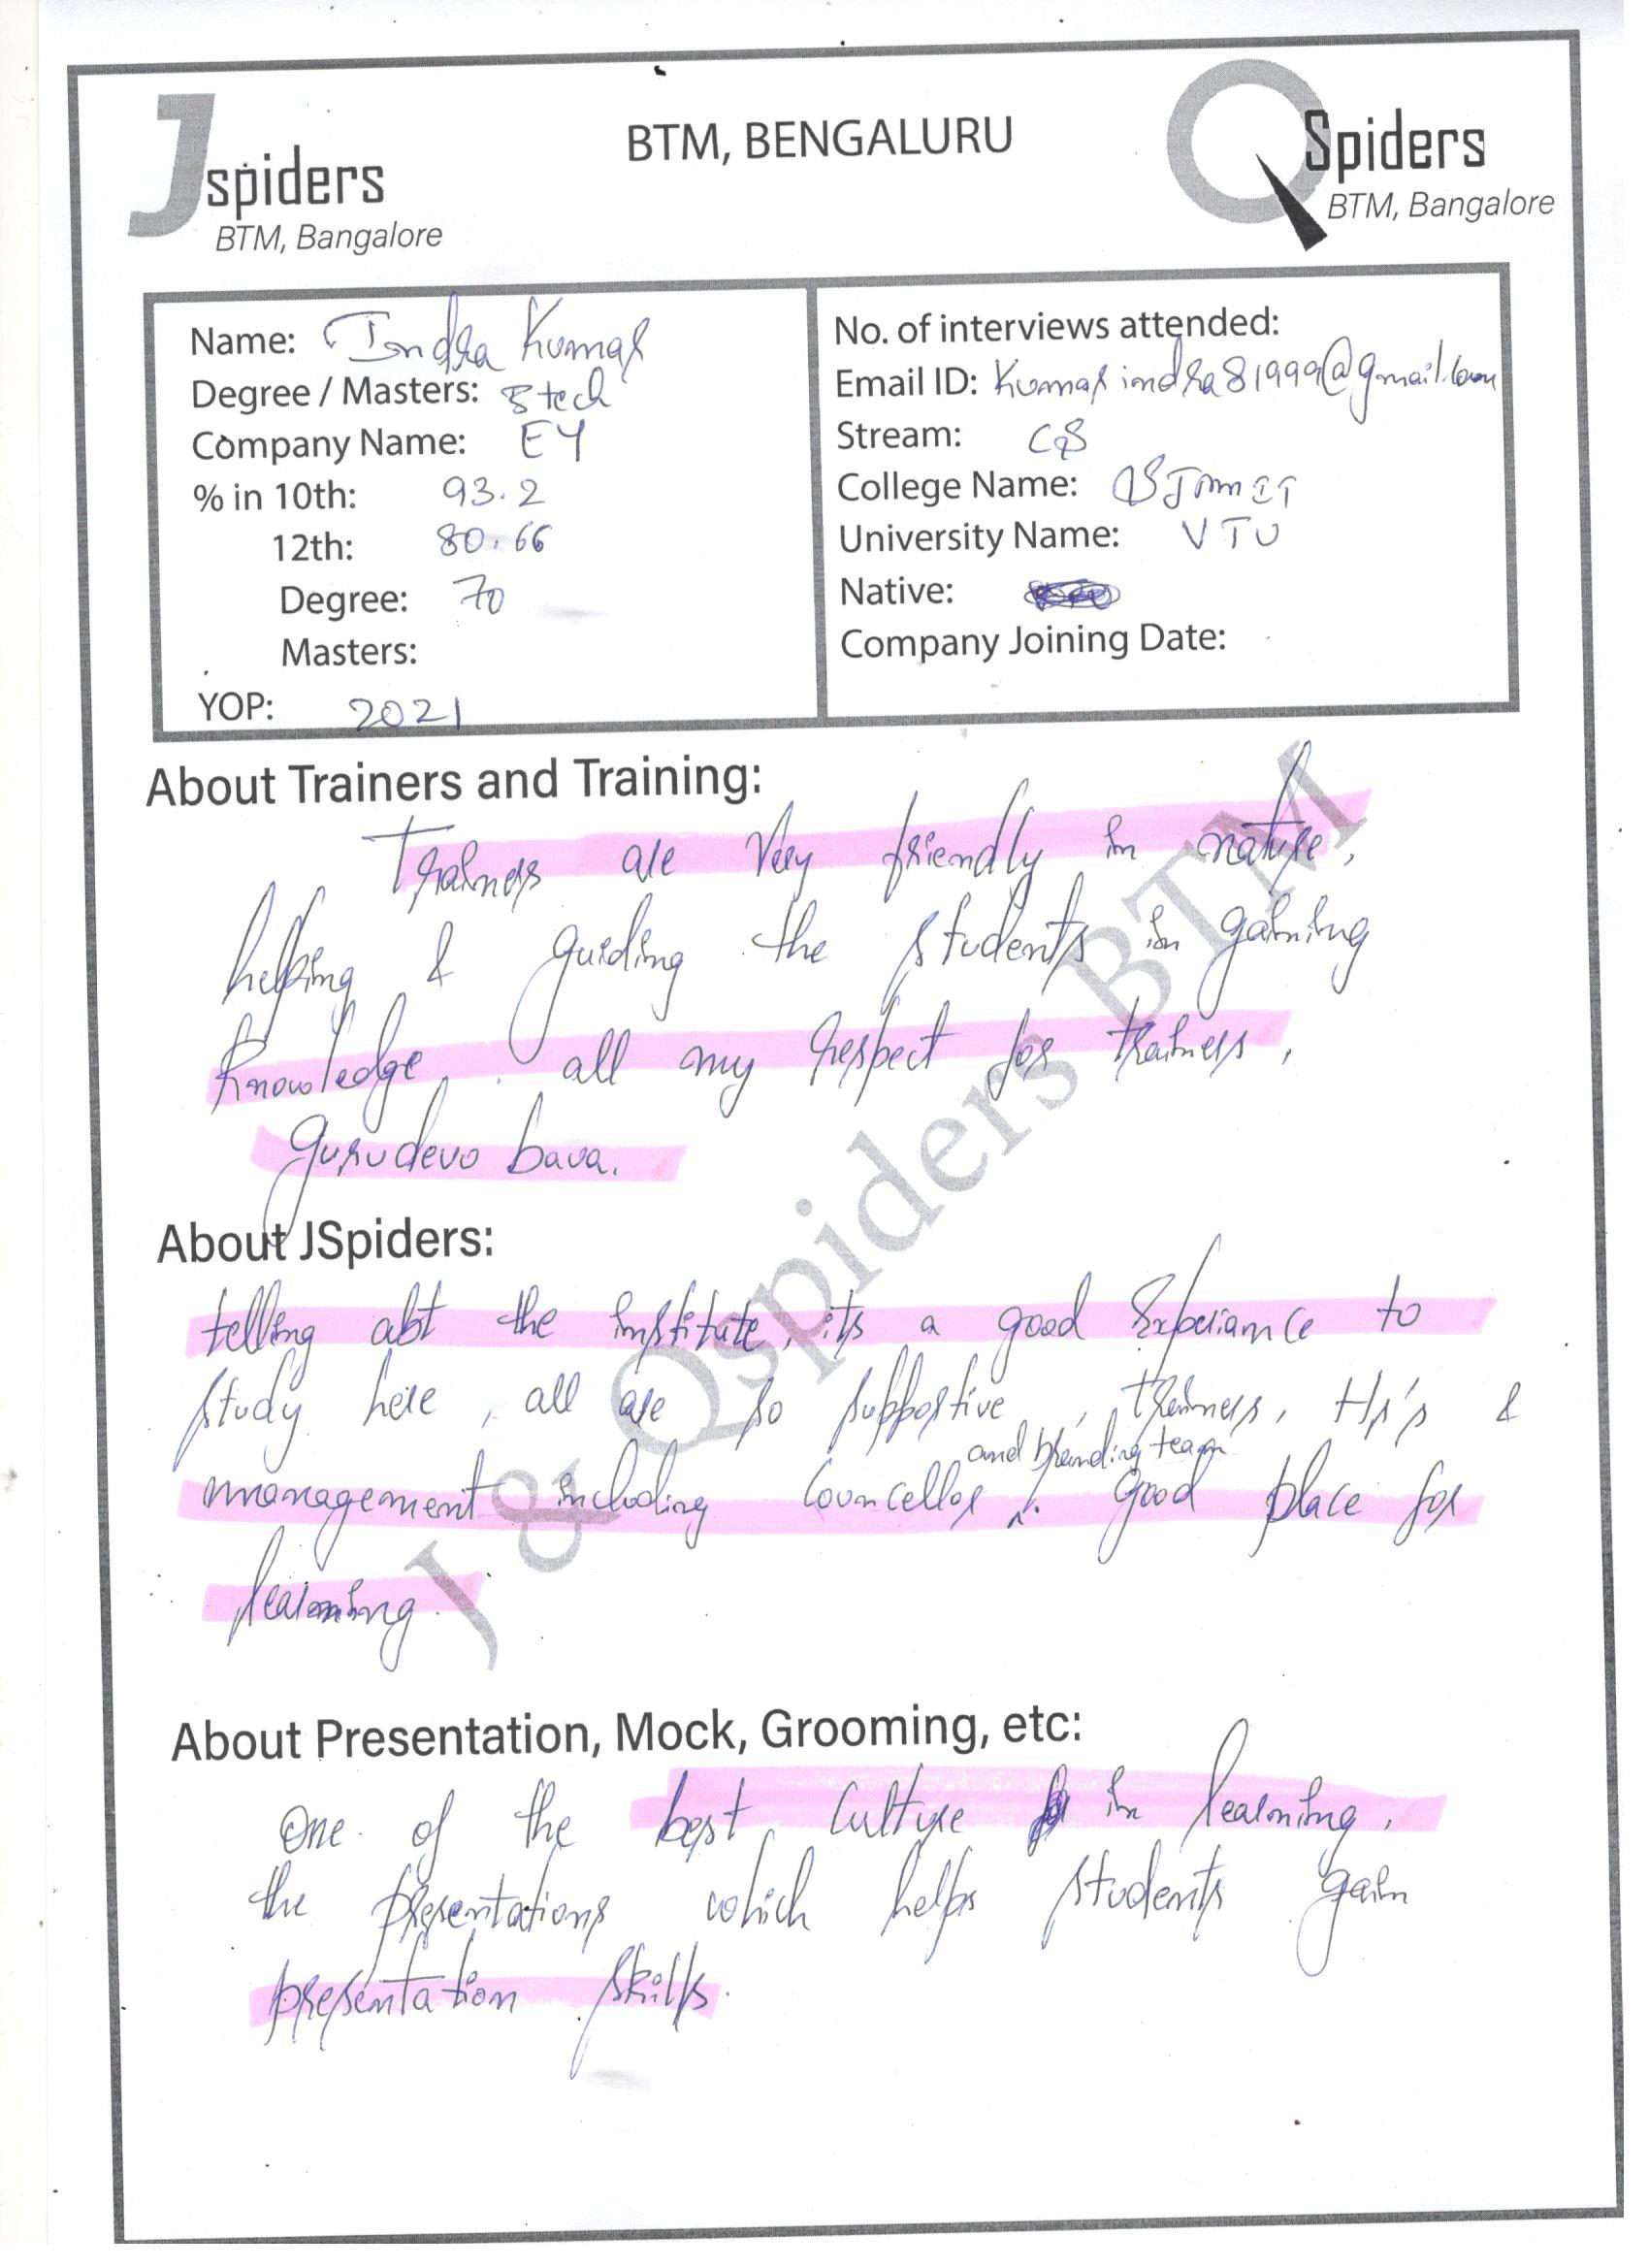 Jspiders
BTM, Bangalore
BTM, BENGALURU
QSpiders
BTM, Bangalore
Name: Indra Kumar
Degree / Masters: Btech
Company Name: EY
% in 10th: 93.2
12th: 80.66
Degree: 70
Masters:
YOP: 2021
No. of interviews attended:
Email ID: Kumarindra81999@gmail.com
Stream: CS
College Name:
University Name: VTU
Native:
Company Joining Date:
About Trainers and Training:
Trainers are very friendly in nature,
helping & guiding the students in gaining
Knowledge. all my respect for trainers,
gurudevo bava.
About JSpiders:
telling abt the institute, its a good Experiance to
study here, all are so supportive, trainers, Hr's &
and branding team
management including Councellor. Good place for
learning.
About Presentation, Mock, Grooming, etc:
One of the best Culture in learning.
the presentations which helps students gain
presentation skills.
J & Qspiders BTM